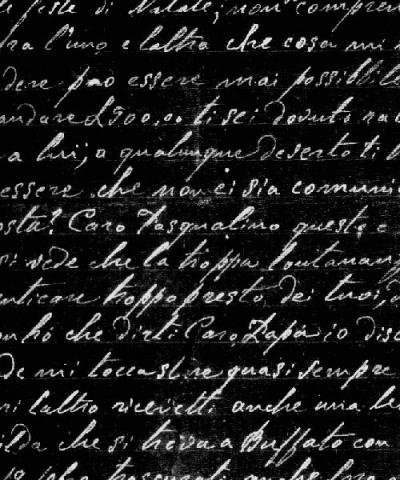 le feste di Natale, non compren
fra l'uno e l'altro che cosa mi
dere può essere mai possibile
andare £500.00 ti sei dovuto
a lui, a qualunque deserto ti
essere che non ci sia comuni
osta? Caro Pasqualino questo e
si vede che la troppa lontanan
enticare troppo presto dei tuoi,
che dirti Caro Papà io
de mi tocca st re quasi sempre
ri l'altro ricevetti anche una le
ilda che si trova a Buffalo con
trascurati anche